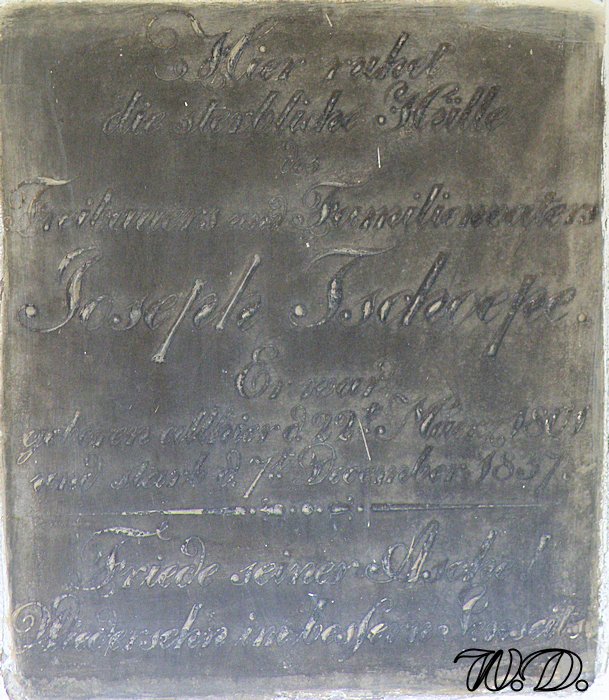 Hier ruhet
die sterbliche Hülle
des
Freibauers und Familienvaters
Joseph Tschoepe.
Er war
geboren allhier d. 22t. März 1801
und starb d. 7t. December 1857.
Friede seiner Asche!
Wiedersehn im bessern Jenseits.
W.D.